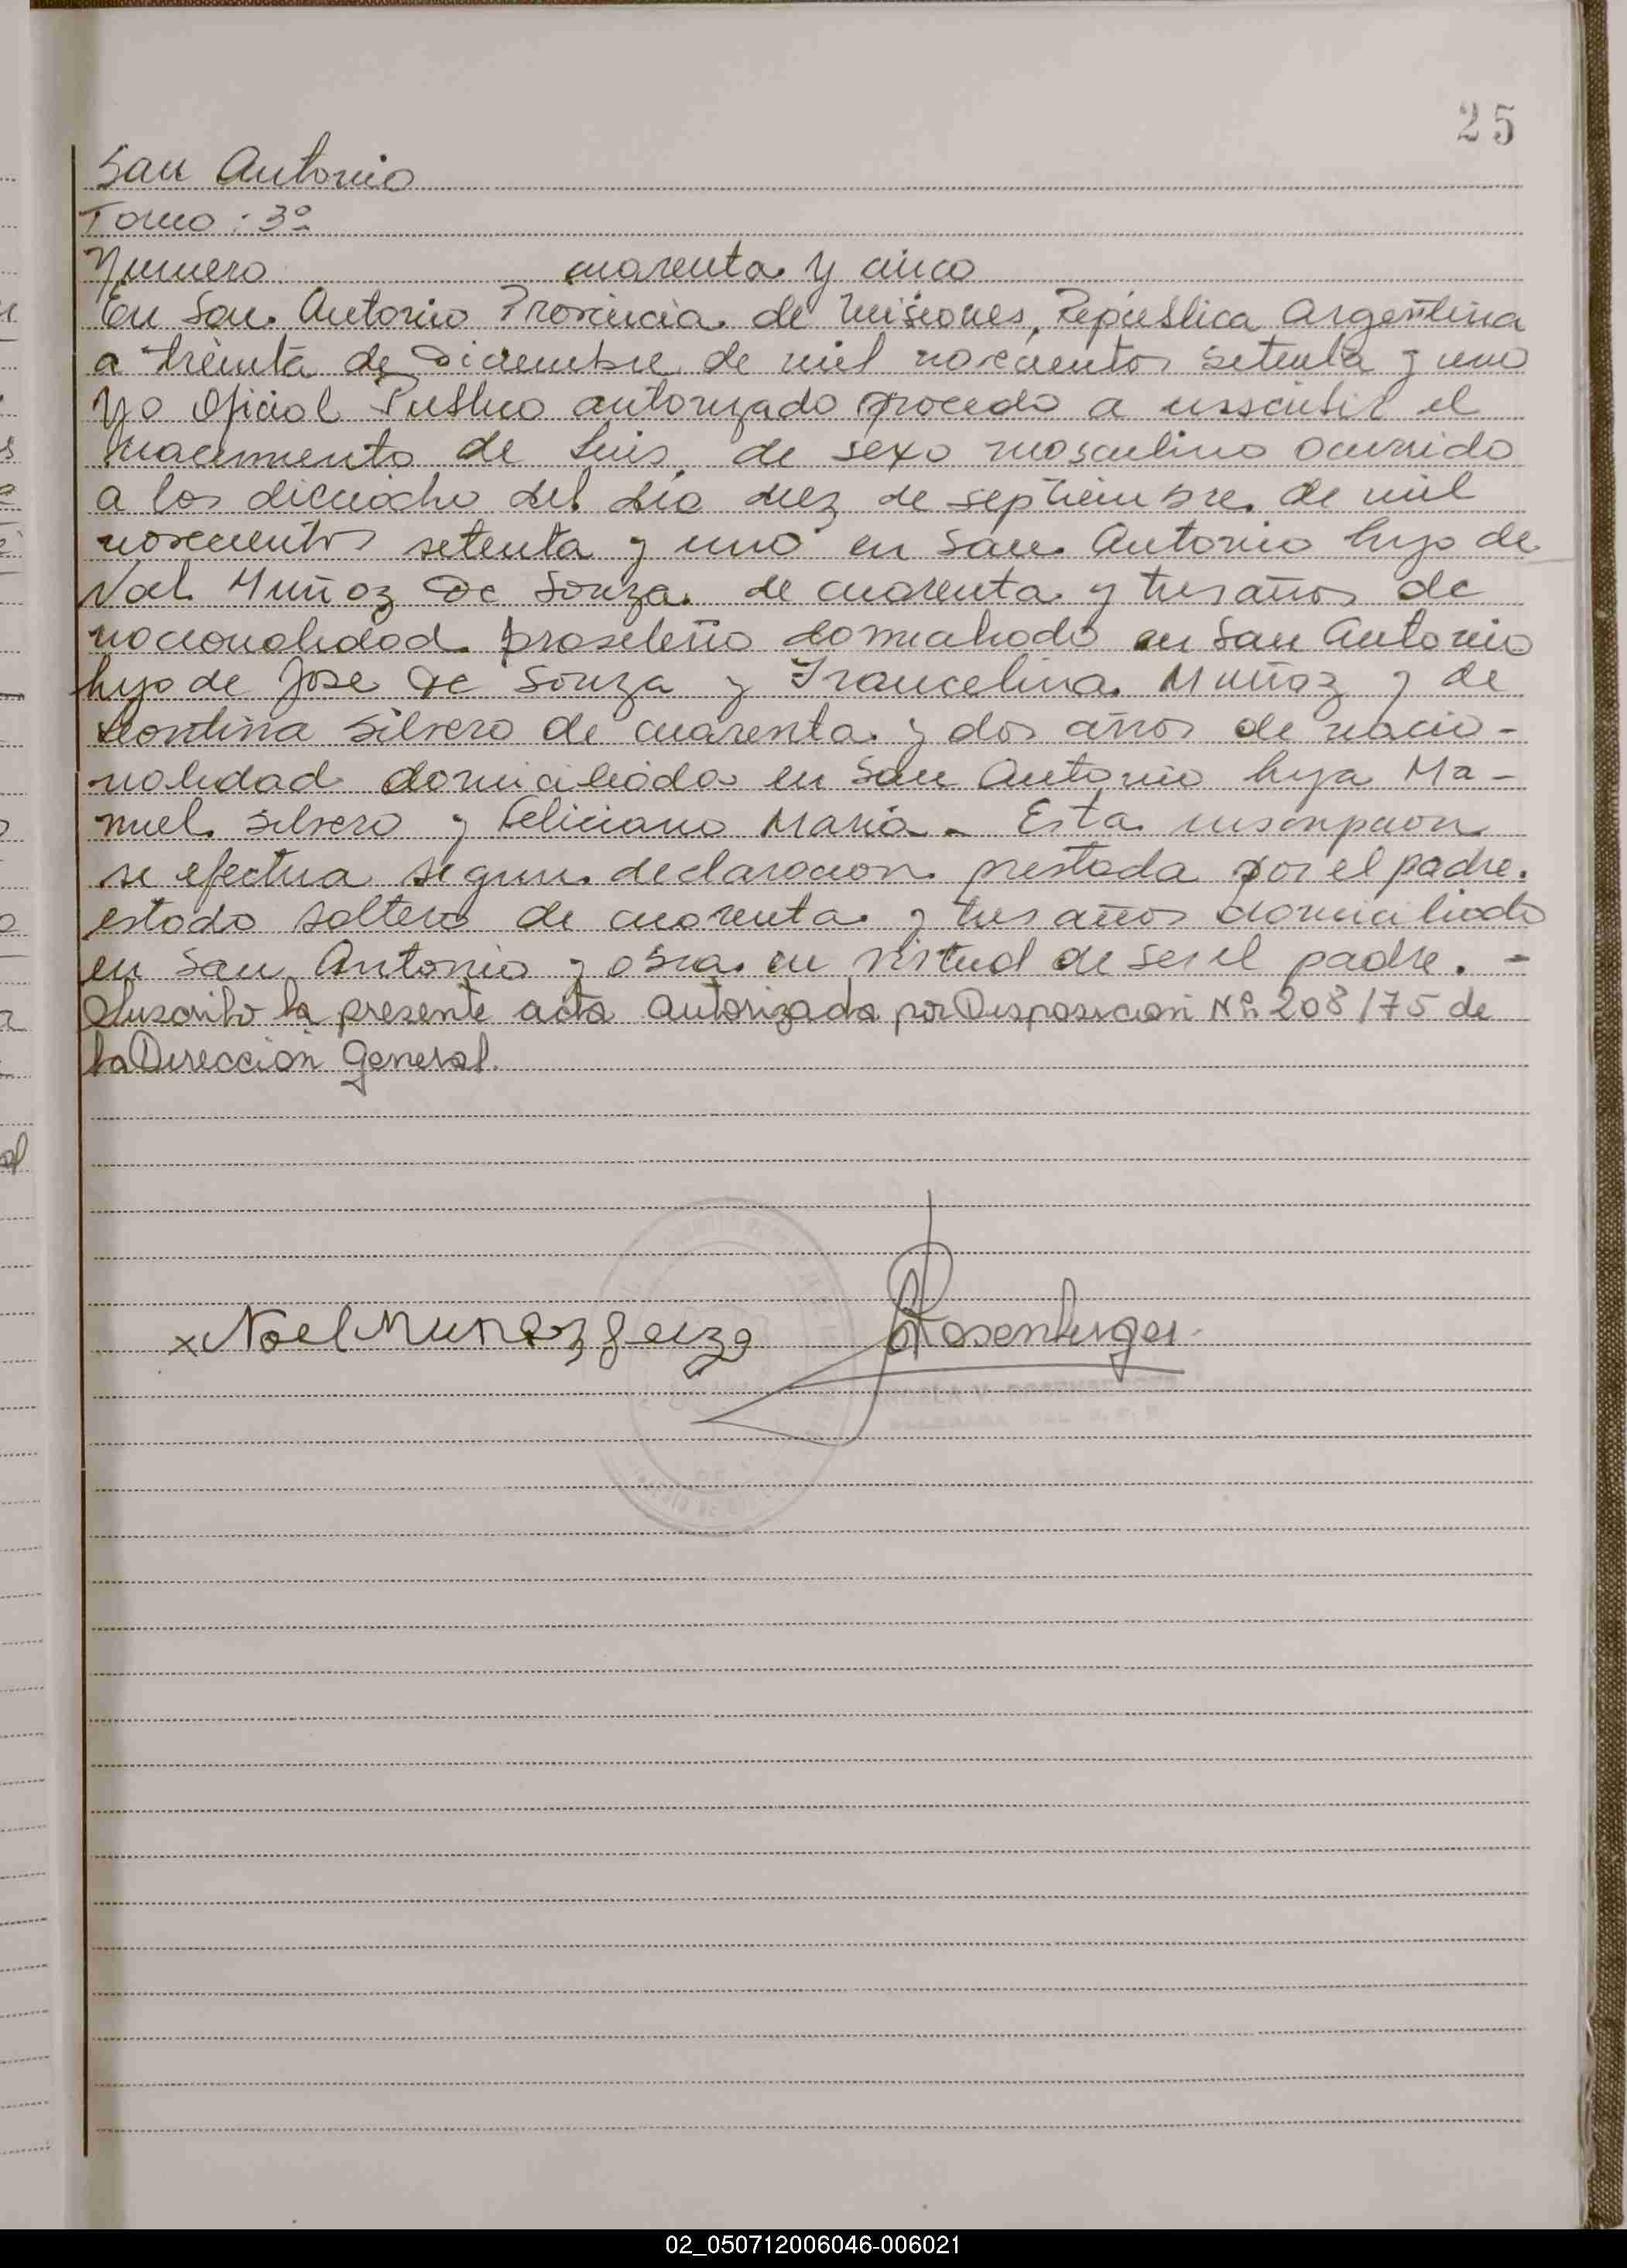 25
San Antonio
Tomo : 3º
Numero cuarenta y cinco
En San Antonio Provincia de Misiones, República Argentina
a treinta de Diciembre de mil novecientos setenta y uno
Yo Oficial Publico autorizado procedo a inscribir el
nacimiento de Luis, de sexo masculino ocurrido
a los dieciocho del dia diez de septiembre de mil
novecientos setenta y uno en San Antonio hijo de
Noel Muñoz De Souza de cuarenta y tres años de
nacionalidad brasileño domiciliado en San Antonio
hijo de Jose De Souza y Francelina Muñoz y de
Leontina Silvero de cuarenta y dos años de nacio-
nalidad domiciliada en San Antonio hija Ma-
nuel Silvero y Feliciana Maria - Esta inscripcion
se efectua segun declaracion prestada por el padre.
estado soltero de cuarenta y tres años domiciliado
en San Antonio y obra en virtud de ser el padre. -
Suscribo la presente acta autorizada por Disposicion Nº 208/75 de
la Direccion General.
x Noel Munoz Rosenberger
02_050712006046-006021